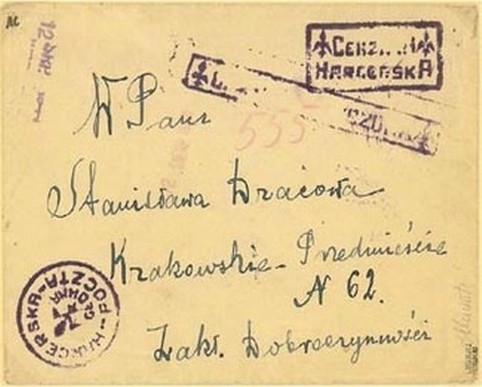 CENZURA
HARCERSKA
555
W Pani
Stanisława Dracowa
Krakowskie-Przedmieście
N 62.
Zakł. Dobroczynności
HARCERSKA POCZTA
GŁÓWNA